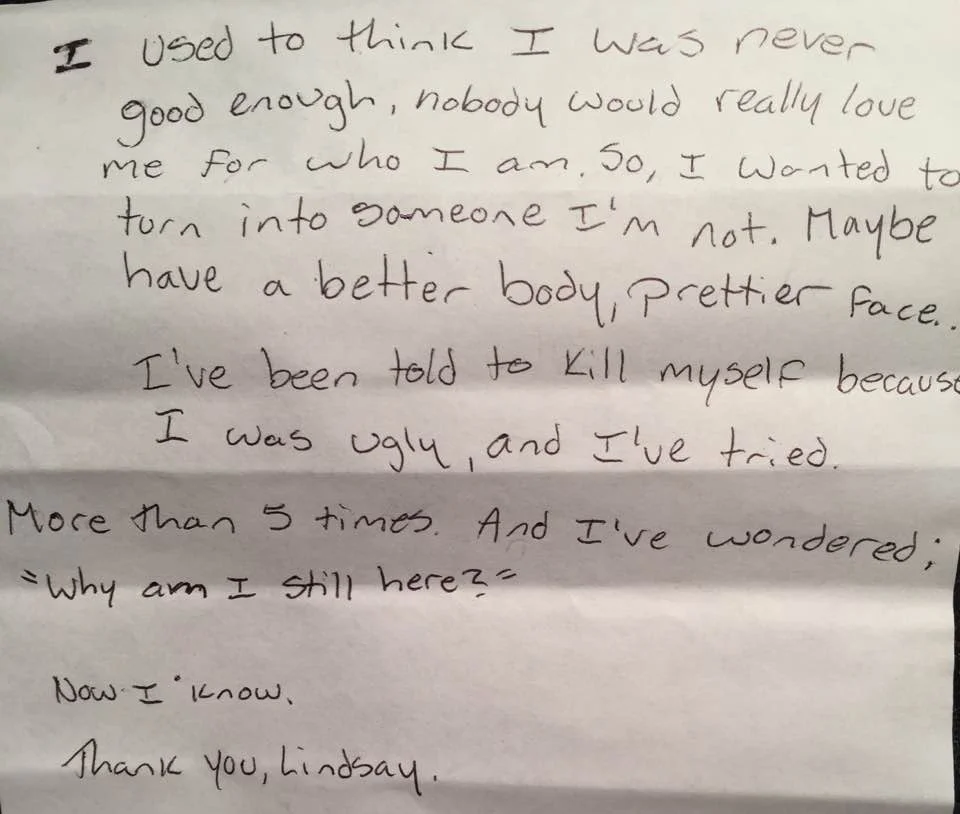 I used to think I was never
good enough, nobody would really love
me for who I am. So, I wanted to
turn into someone I'm not. Maybe
have a better body, prettier face..
I've been told to kill myself because
I was ugly, and I've tried.
More than 5 times. And I've wondered;
"Why am I still here?"
Now I know.
Thank you, Lindsay.